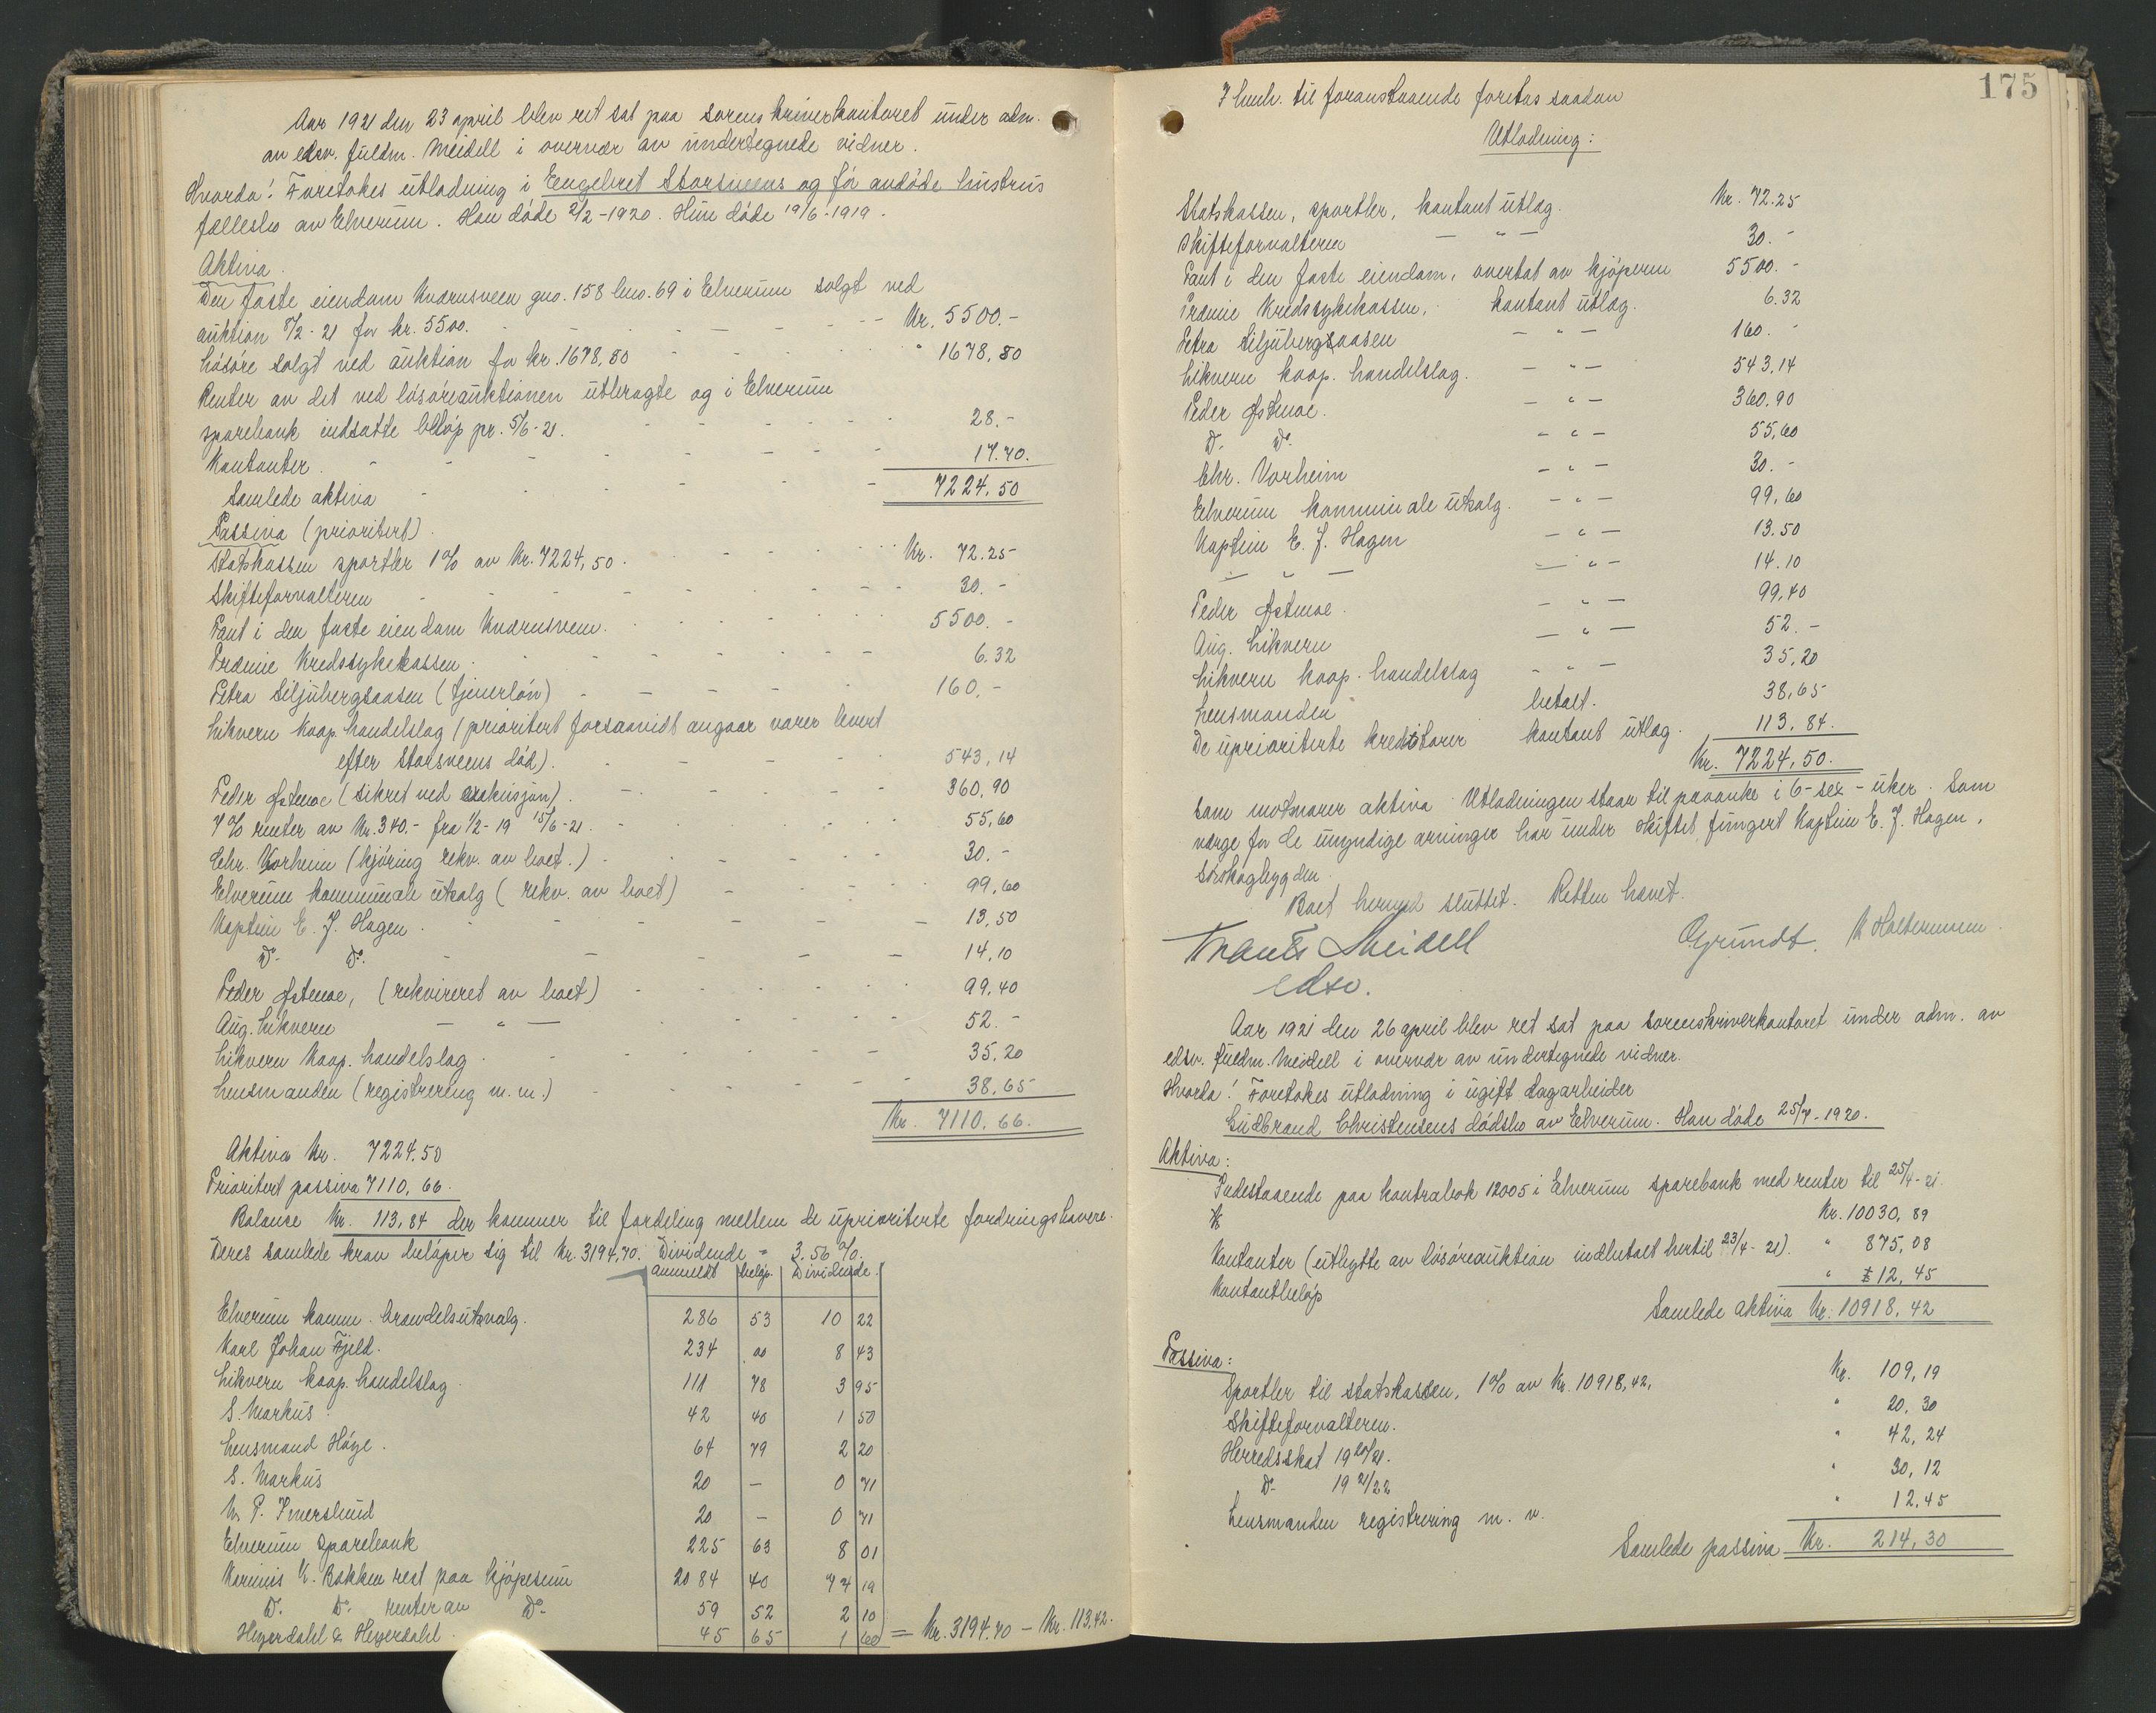 Aar 1921 den 23 april blev ret sat paa sorenskriverkontoret under adm.
av edsv. fuldm. Meidell i overvær av undertegnede vidner.
Hvorda! Foretokes utlodning i Engebret Storsveens og før avdøde hustrus
fællesbo av Elverum. Han døde 2/2-1920. Hun døde 19/6-1919.
Aktiva.
Den faste eiendom Kvarnsveen gno. 158 bno. 69 i Elverum solgt ved
auktion 8/2-21 for kr. 5500. - - - - Kr. 5500.-
Løsøre solgt ved auktion for kr. 1678,80 - - - " 1678,80
Renter av det ved løsøreauktionen utbragte og i Elverum
sparebank indsatte beløp pr. 5/6-21. - - - 28.-
Kontanter. - - - 17.70.
Samlede aktiva - - - 7224.50
Passiva (prioritert)
Statskassen sportler 1% av Kr. 7224,50. - - - Kr. 72.25
Skifteforvalteren - - - 30.-
Pant i den faste eiendom Kvarnsveen. - - - 5500.-
Præmie Kredssykekassen. - - - 6.32
Petra Siljubergsaasen (tjenerløn) - - - 160.-
Likvern koop. handelslag (prioritert forsaavidt angaar varer levert
efter Storsveens død). - - - 543,14
Peder Østmoe (sikret ved exekusjon). - - - 360,90
7% renter av Kr. 340.- fra 1/2-19 15/6-21. - - - 55,60
Chr. Vorheim (kjøring rekv. av boet.) - - - 30.-
Elverum kommunale utsalg (rekv. av boet) - - - 99,60
Kaptein E. J. Hagen. - - - 13,50
Do. Do. - - - 14,10
Peder Østmoe, (rekvireret av boet) - - - 99.40
Aug. Likvern - " - - - 52.-
Likvern koop. handelslag. - - - 35,20
Lensmanden (registrering m.m.) - - - 38,65
Kr. 7110,66.
Aktiva Kr. 7224.50
Prioritert passiva 7110,66.
Balance Kr. 113,84 der kommer til fordeling mellem de uprioriterte fordringshavere.
Deres samlede krav beløper sig til Kr. 3194,70. Dividende = 3.56%.
anmeldt beløp. Dividende.
Elverum komm. brændelsutvalg. 286 53 10 22
Karl Johan Fjeld. 234 00 8 43
Likvern koop. handelslag 111 78 3 95
S. Markus. 42 40 1 50
Lensmand Høye. 64 79 2 20
S. Markus 20 - 0 71
M. P. Iverslund 20 - 0 71
Elverum sparebank 225 63 8 01
Karinius K. Bakken rest paa kjøpesum 2084 40 74 19
Do. Do. renter av Do. 59 52 2 10
Heyerdahl & Heyerdahl. 45 65 1 60 = Kr. 3194.70 - Kr. 113,42.
175
I henh. til foranstaaende foretas saadan
Utlodning:
Statskassen, sportler, kontant utlag. Kr. 72.25
Skifteforvalteren - " - 30.-
Pant i den faste eiendom, overtat av kjøperen 5500.-
Præmie Kredssykekassen, kontant utlag. 6.32
Petra Siljubergsaasen - " - 160.-
Likvern koop. handelslag. - " - 543,14
Peder Østmoe. - " - 360.90
Do. Do. - " - 55,60
Chr. Vorheim - " - 30.-
Elverum kommunale utsalg. - " - 99,60
Kaptein E. J. Hagen - " - 13.50
- " - - " - 14.10
Peder Østmoe. - " - 99,40
Aug. Likvern - " - 52.-
Likvern koop. handelslag - " - 35,20
Lensmanden betalt. 38,65
De uprioriterte kreditorer kontant utlag. 113,84.
Kr. 7224,50.
som motsvarer aktiva. Utlodningen staar til paaanke i 6-sex-uker. Som
værge for de umyndige arvinger har under skiftet fungert Kaptein E. J. Hagen,
Sørskogbygden.
Boet herved sluttet. Retten hævet.
Frants Meidell Grundt. K Haltermann
edsv.
Aar 1921 den 26 april blev ret sat paa sorenskriverkontoret under adm. av
edsv. fuldm. Meidell i overvær av undertegnede vidner.
Hvorda! Foretokes utlodning i ugift dagarbeider
Gudbrand Christensens dødsbo av Elverum. Han døde 25/7-1920.
Aktiva:
Indestaaende paa kontrabok 12005 i Elverum sparebank med renter til 25/4-21.
Kr. 10030,89
Kontanter (utbytte av løsøreauktion indbetalt hertil 23/4-21). " 875,08
Kontantbeløp " 12,45
Samlede aktiva Kr. 10918,42
Passiva:
Sportler til statskassen, 1% av Kr. 10918,42. Kr. 109,19
Skifteforvalteren. " 20,30
Herredsskat 1920/21. " 42,24
Do 1921/22 " 30,12
Lensmanden registrering m. v. " 12.45
Samlede passiva Kr. 214,30